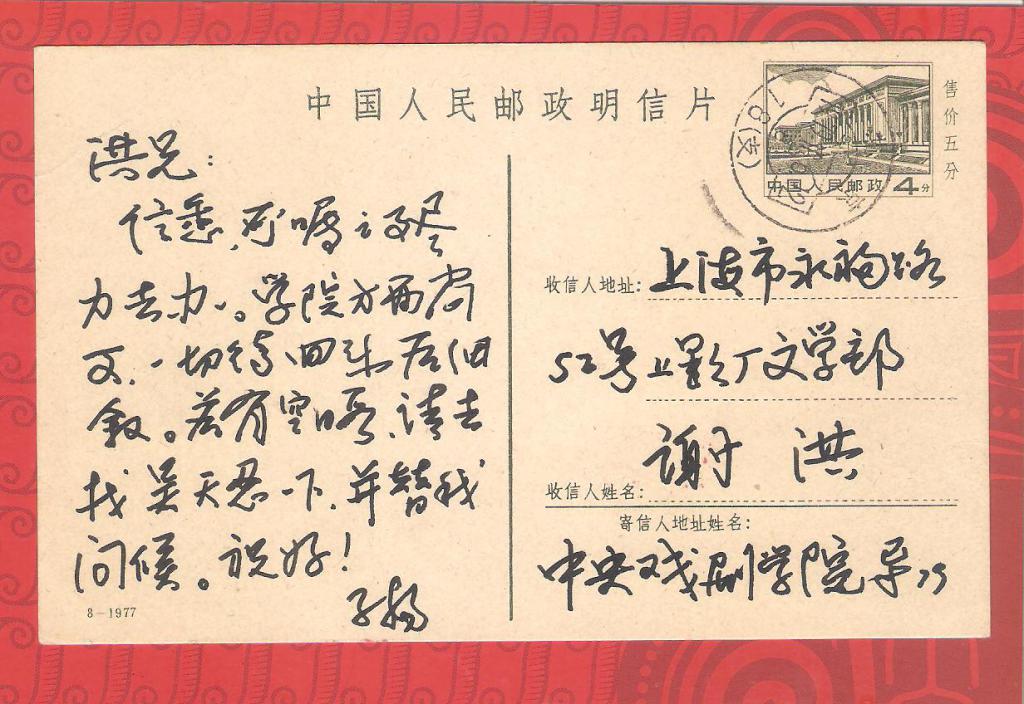 中国人民邮政明信片
售价五分
中国人民邮政 4分
洪兄：
信悉，所嘱之事尽
力去办。学院方面尚
一切待回来后细
叙。若有空暇，请去
找吴天忍一下，并替我
问候。祝好！
子扬
8-1977
收信人地址：上海市永福路
52号上影厂文学部
收信人姓名：谢洪
寄信人地址姓名：
中央戏剧学院导75